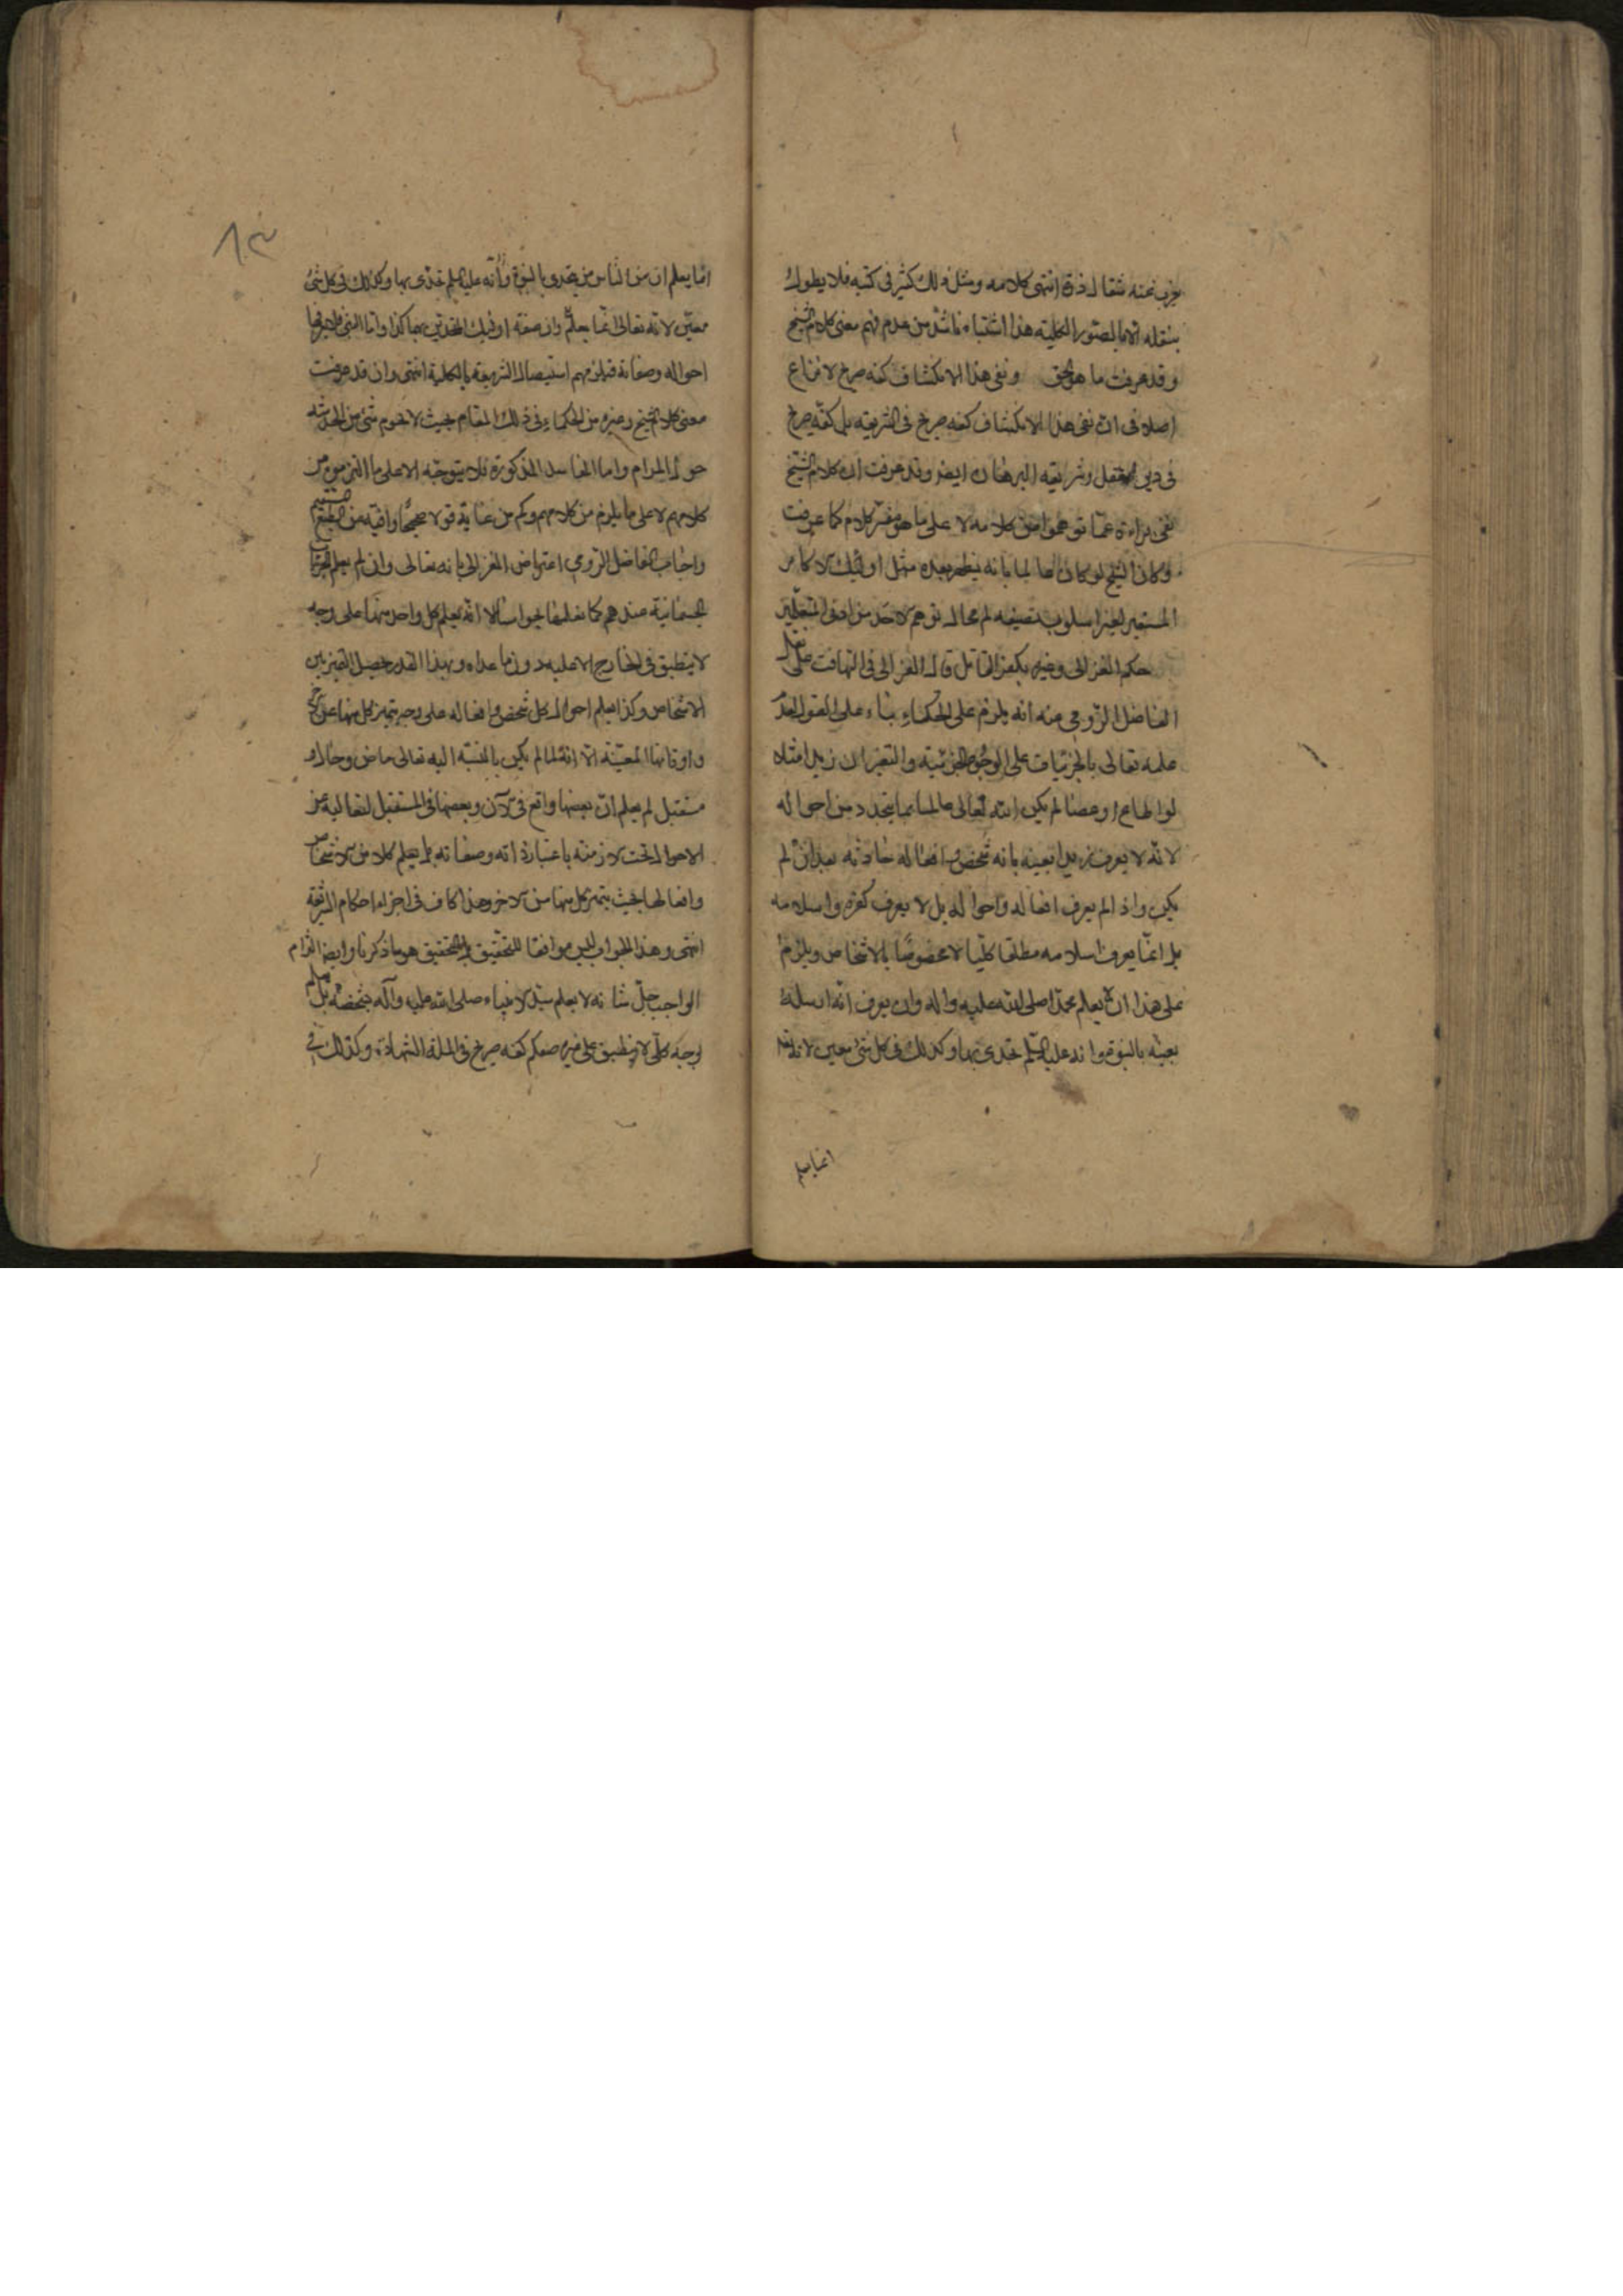 يعزب عنه مثقال ذرة انتهى كلامه ومثل ذلك كثير فى كتبه فلا يطول
بنقله الا بالصور الكلية هذا اشتباه ناش من عدم فهم معنى كلام الشيخ
وقد عرفت ما هو الحق ونفى هذا الانكشاف كفر صريح لا نزاع
اصلا فى ان نفى هذا الانكشاف كفر صريح فى الشريعة بل كفر صريح
فى دين العقل وشرايعه البرهان ايضا وقد عرفت ان كلام الشيخ
نفى براءة عما توهموا من كلامه لا على ما هو مفسر كلام كما عرفت
وكان الشيخ لو كان عالما بانه يظهر بعده مثل اولئك الاكابر
المستقيم لغير اسلوب تصنيفه لم مجال توهم لاحد من ادنى المتعلمين
حكم الغزالى وغيره بكفر القائل قال الغزالى فى التهافت على ما نقل
الفاضل الرومى منه انه يلزم على الحكماء بناء على القول بعدم
علمه تعالى بالجزئيات على الوجوه الجزئية والتغير ان زيدا مثلا
لو اطاع او عصى لم يكن الله تعالى عالما بما يتجدد من احواله
لانه لا يعرف زيدا بعينه بانه شخص وافعاله حادثه بعد ان لم
يكن واذا لم يعرف افعاله واحواله بل لا يعرف كفره واسلامه
بل انما يعرف اسلامه مطلقا كليا لا مخصوصا بالاشخاص ويلزم
على هذا ان لا يعلم محمدا صلى الله عليه واله وان يعرف انه ارسله
بعينه بالنبوة وانه عليه السلم تحدى بها وكذلك فى كل شئ معين لانه تعالى
انما يعلم
٨٣
انما يعلم ان من الناس من يتحدى بالنبوة وانه عليه السلم تحدى بها وكذلك فى كل شئ
معين لانه تعالى انما يعلم وان صفة اولئك المتحدين بها كذا واما النبى فلا يعرفها
احواله وصفاته فيلزمهم استيصال الشريعة بالكلية انتهى وان قد عرفت
معنى كلام الشيخ وغيره من الحكماء فى ذلك المقام بحيث لا يحوم شئ من الخدشه
حول المرام واما المفاسد المذكورة فلا يتوجه الا على ما التزموه من
كلامهم لا على ما يلزم من كلامهم وكم من عائب قولا صحيحا وافته من الفهم السقيم
واجاب الفاضل الرومى اعتراض الغزالى بانه تعالى وان لم يعلم الجزئيات
الجسمانية عندهم كما نعلمها بحواسنا الا انه يعلم كل واحد منها على وجه
لا ينطبق فى الخارج الا عليه دون ما عداه وبهذا القدر حصل التميز بين
الاشخاص وكذا يعلم احوال كل شخص وافعاله على وجه يتميز كل منها عن الاخر
واوقاتها المعينة الا انه لما لم يكن بالنسبة اليه تعالى ماض وحال و
مستقبل لم يعلم ان بعضها واقع فى الآن وبعضها فى المستقبل لتعاليه عن
الاحوال تحت الازمنة باعتبار ذاته وصفاته بل يعلم كلا من الاشخاص
وافعالها بحيث يتميز كل منها من الاخر وهذا كاف فى اجراء احكام الشريعة
انتهى وهذا الجواب ليس موافقا للتحقيق بل التحقيق هو ما ذكرنا وايضا التزام
الواجب جل شانه لا يعلم سيد الانبياء صلى الله عليه وآله بشخصه بل يعلم
بوجه كلى لا ينطبق على غيره صنعكم كفر صريح فى الملة الشهادة وكذلك فى